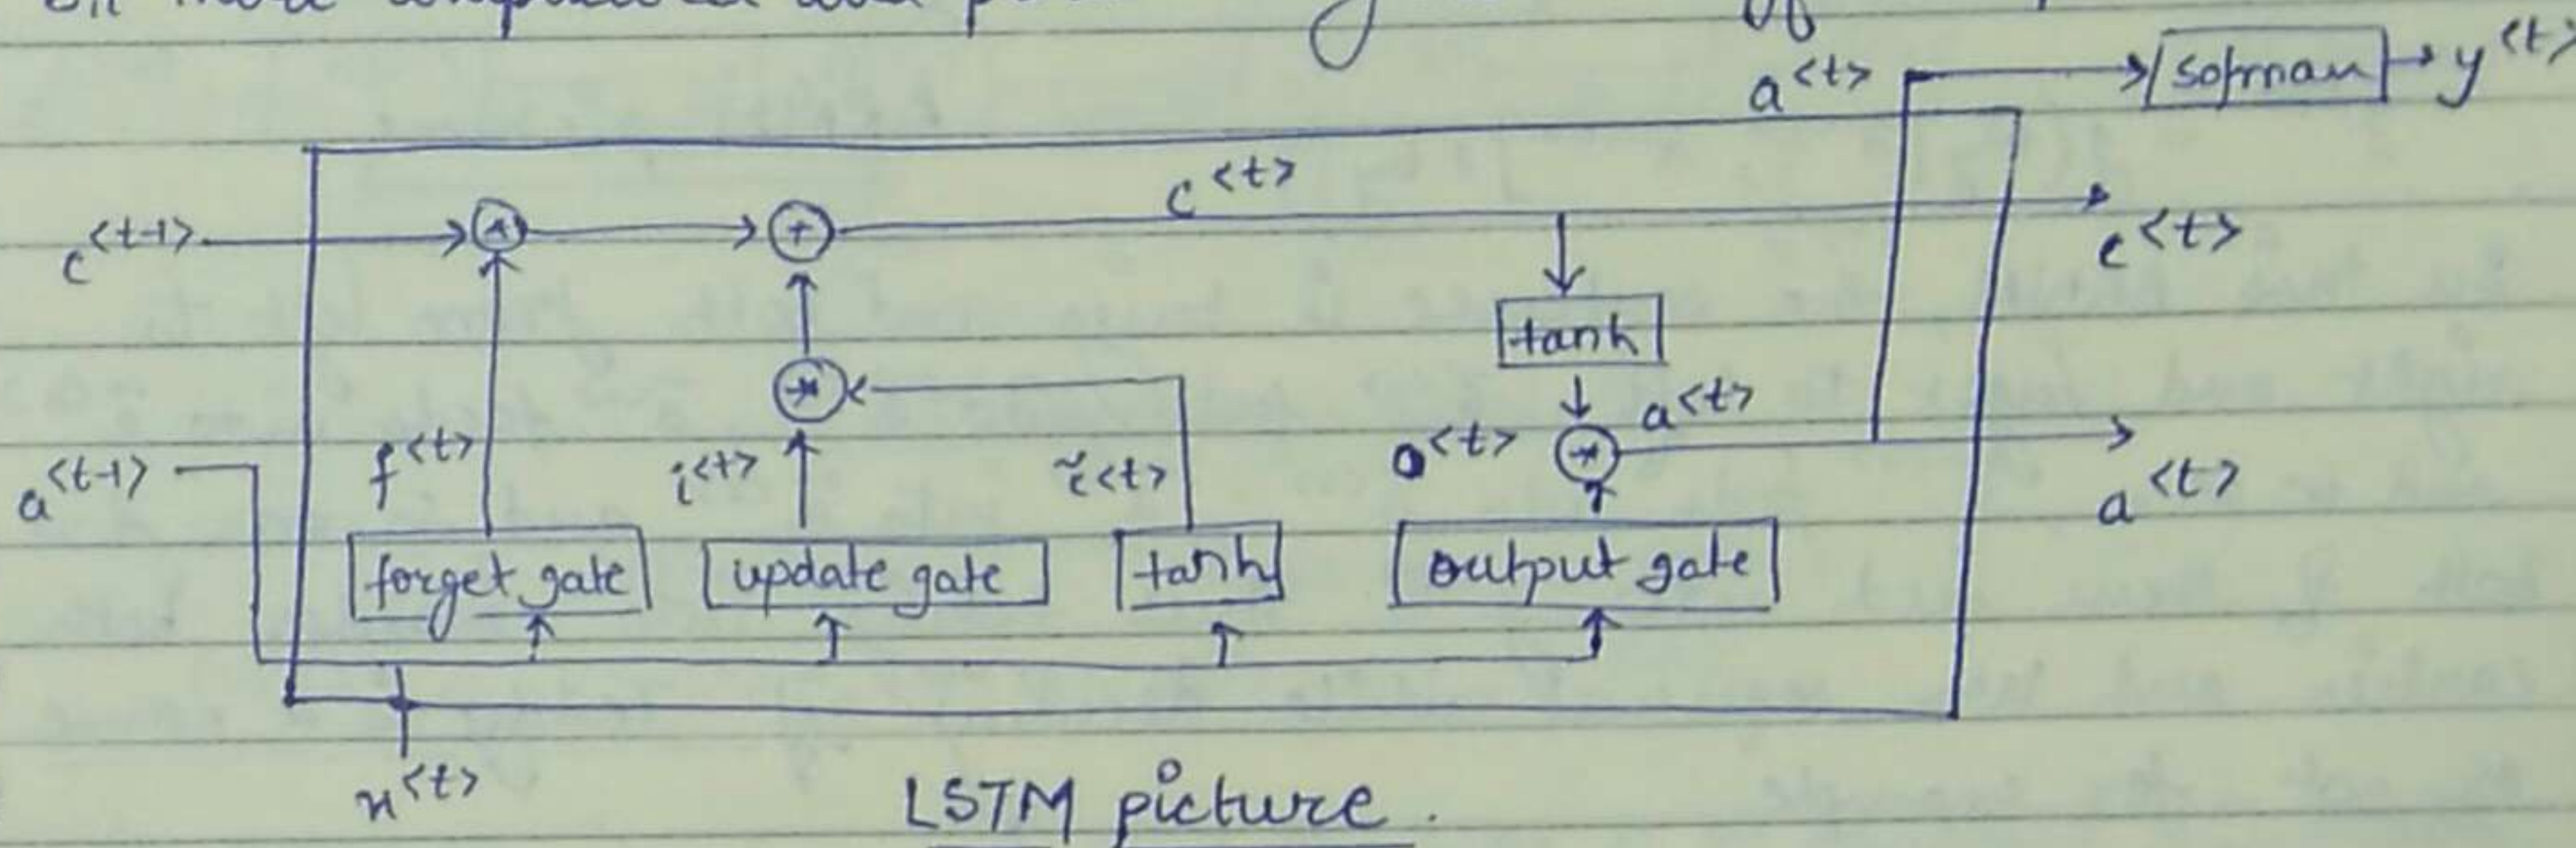 a<t> sofmax y<t>
c<t>
c<t-1> * + c<t>
tanh
* a<t>
f<t> i<t> c̃<t> o<t> *
a<t-1> a<t>
forget gate update gate tanh output gate
x<t>
LSTM picture.